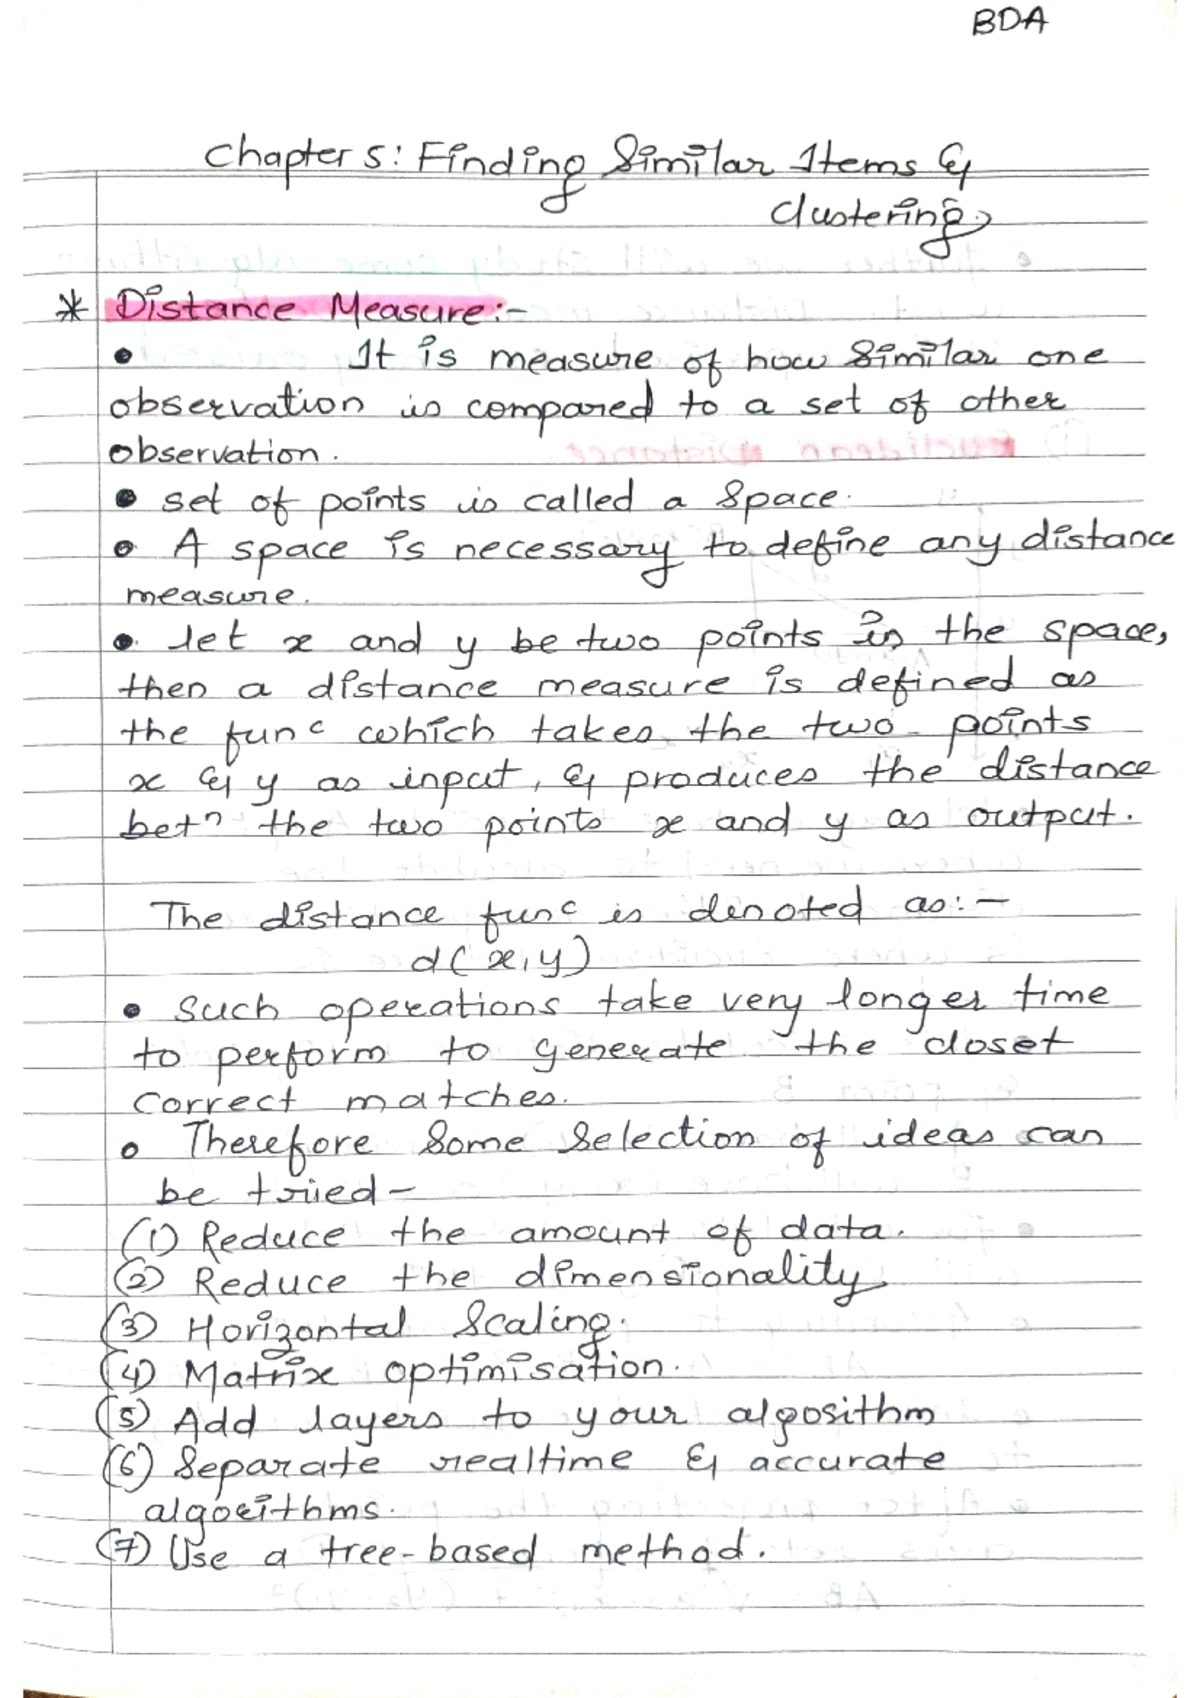 BDA
Chapter 5: Finding Similar Items &
Clustering
* Distance Measure:-
• It is measure of how similar one
observation is compared to a set of other
observation.
• set of points is called a space.
• A space is necessary to define any distance
measure.
• let x and y be two points in the space,
then a distance measure is defined as
the funᶜ which takes the two points
x & y as input, & produces the distance
betⁿ the two points x and y as output.
The distance funᶜ is denoted as:-
d(x,y)
• Such operations take very longer time
to perform to generate the closet
correct matches.
• Therefore some selection of ideas can
be tried-
(1) Reduce the amount of data.
(2) Reduce the dimensionality
(3) Horizontal Scaling.
(4) Matrix optimisation.
(5) Add layers to your algosithm
(6) Separate realtime & accurate
algorithms.
(7) Use a tree-based method.